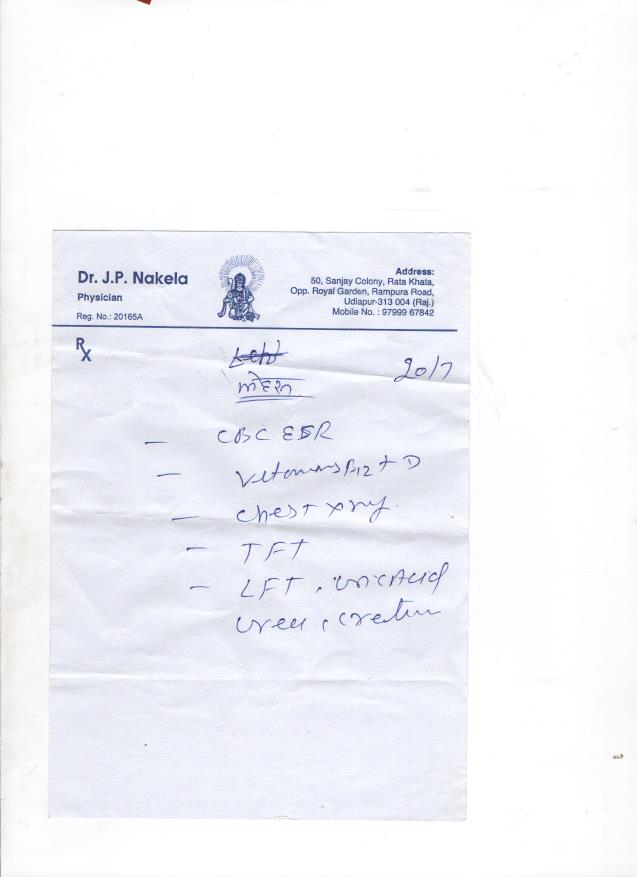 Dr. J.P. Nakela
Physician
Reg. No.: 20165A
Address:
50, Sanjay Colony, Rata Khata,
Opp. Royal Garden, Rampura Road,
Udiapur-313 004 (Raj.)
Mobile No. : 97999 67842
Rx
20/7
- CBC ESR
- Vitamins B12 + D
- Chest xray.
- TFT
- LFT, Uric Acid
Urea, Creatin